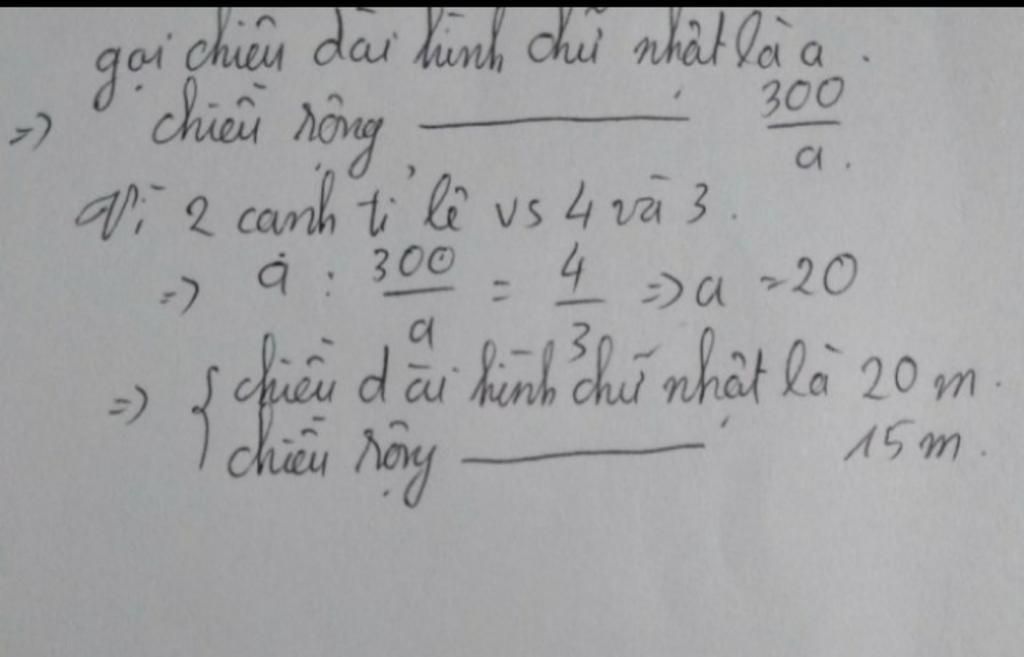 gọi chiều dài hình chữ nhật là a.
=> chiều rộng ——— 300/a.
Vì 2 cạnh tỉ lệ vs 4 và 3.
=> a : 300/a = 4/3 => a = 20
=> { chiều dài hình chữ nhật là 20 m.
chiều rộng ——— 15 m.